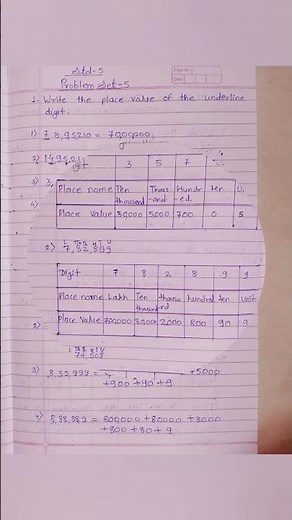 Std-5
Problem Set-5
1. Write the place value of the underline
digit.
1) 7 8,95,210 = 7000000
2) 1495,21
3 5 7
3) 3,
Place name Ten thousand Thous-and Hundr-ed. ten U
4)
Place Value 30000 5000 700 0 5
2) 7,82,899
Digit 7 8 2 8 9 9
Place name Lakh Ten thousand thousand hundred ten Unit
2) Place Value 700000 80000 2000 800 90 9
3) 8,35,999 = +5000
+900 +90 +9
4) 8,88,889 = 800000 +80000 +8000
+800 +80 + 9